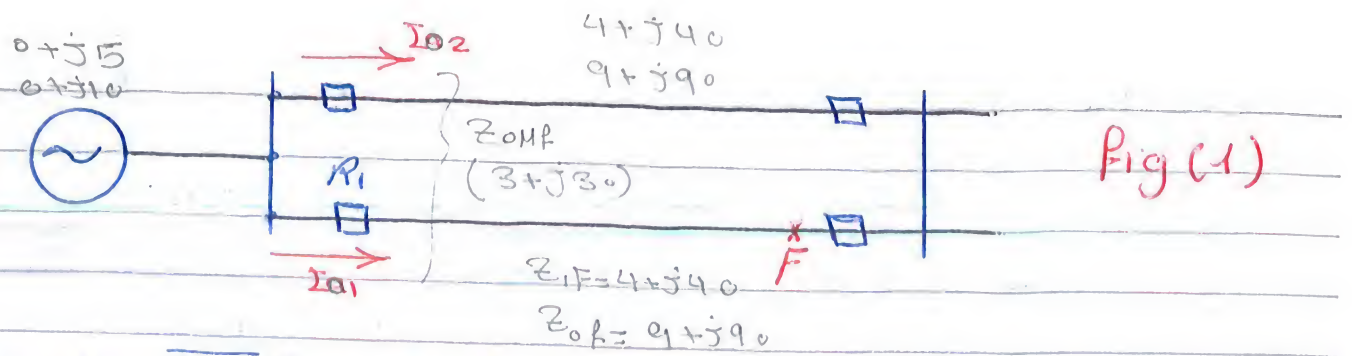 0+j5
0+j10
I02
4+j40
9+j90
Z0Mf
(3+j30)
R1
Fig (1)
F
I01
Z1F=4+j40
Z0f=9+j90